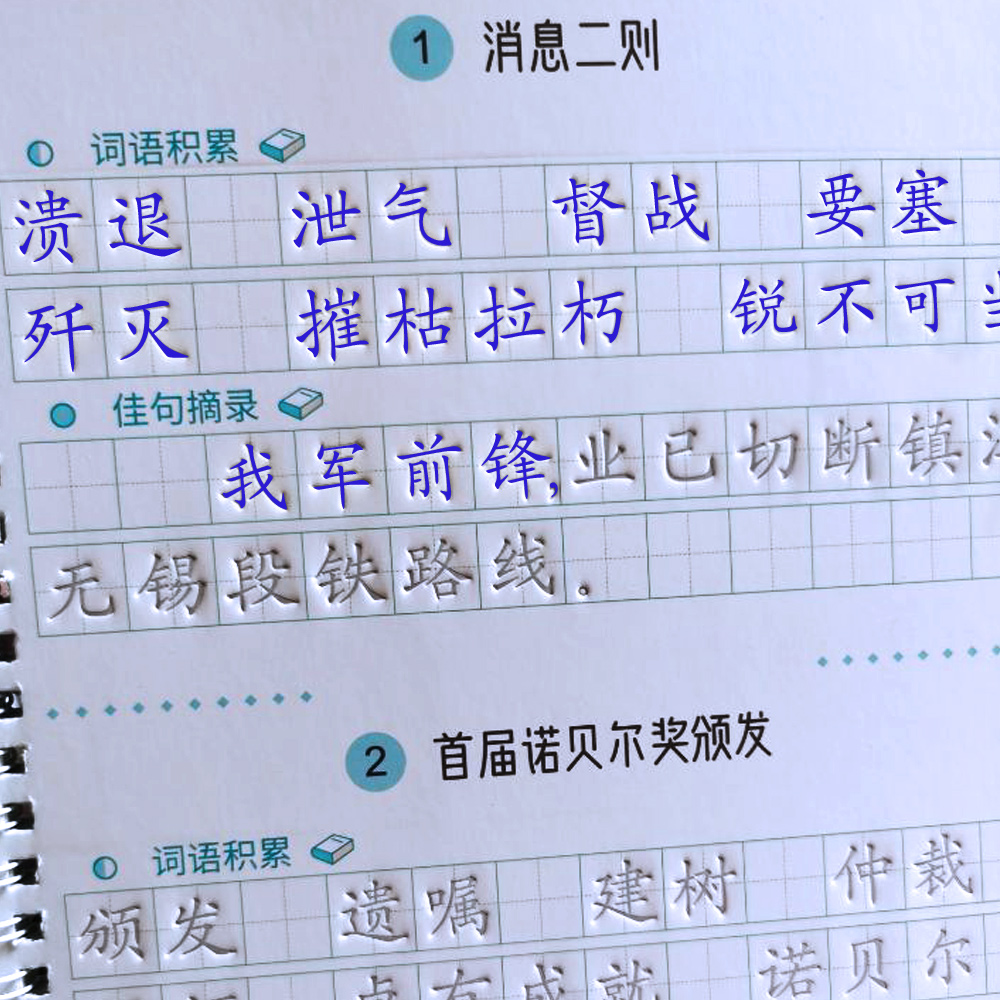 1 消息二则
词语积累
溃退 泄气 督战 要塞
歼灭 摧枯拉朽 锐不可当
佳句摘录
我军前锋,业已切断镇
无锡段铁路线。
2 首届诺贝尔奖颁发
词语积累
颁发 遗嘱 建树 仲裁
卓有成就 诺贝尔